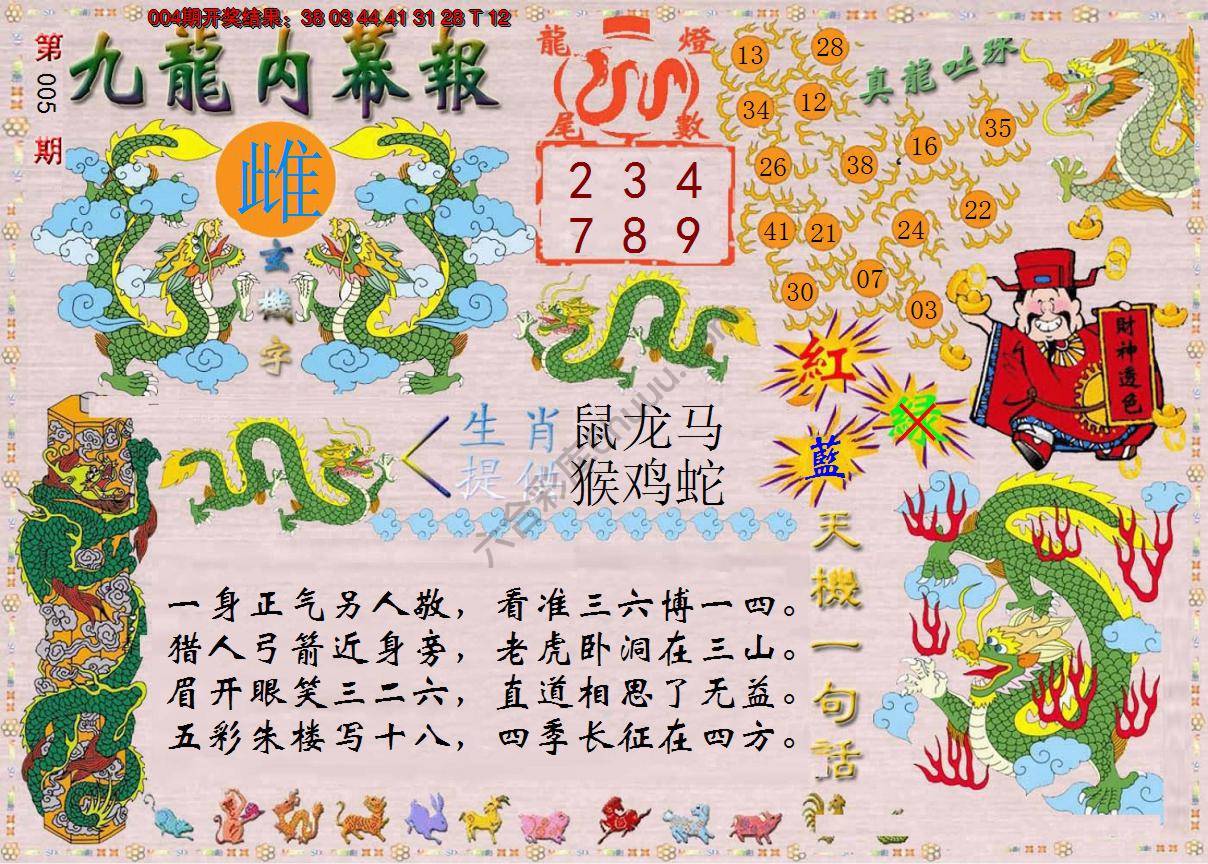 004期开奖结果：38 03 44 41 31 28 T 12
第005期
九龍内幕報
雌
玄機字
龍燈
尾數
2 3 4
7 8 9
真龍吐珠
13
28
34
12
26
38
16
35
41
21
24
22
30
07
03
財神透色
紅
绿
藍
生肖
提供
鼠龙马
猴鸡蛇
天機一句話
一身正气另人敬，看准三六博一四。
猎人弓箭近身旁，老虎卧洞在三山。
眉开眼笑三二六，直道相思了无益。
五彩朱楼写十八，四季长征在四方。